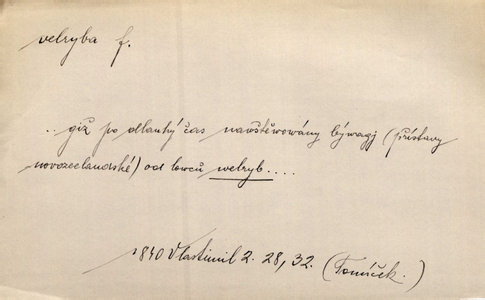 velryba f.
.. giž po dlauhý čas nawštěwowány býwagj (přístavy
novozeelandské) od lowců welryb....
1840 Vlastimil 2. 28, 32. (Tomíček.)